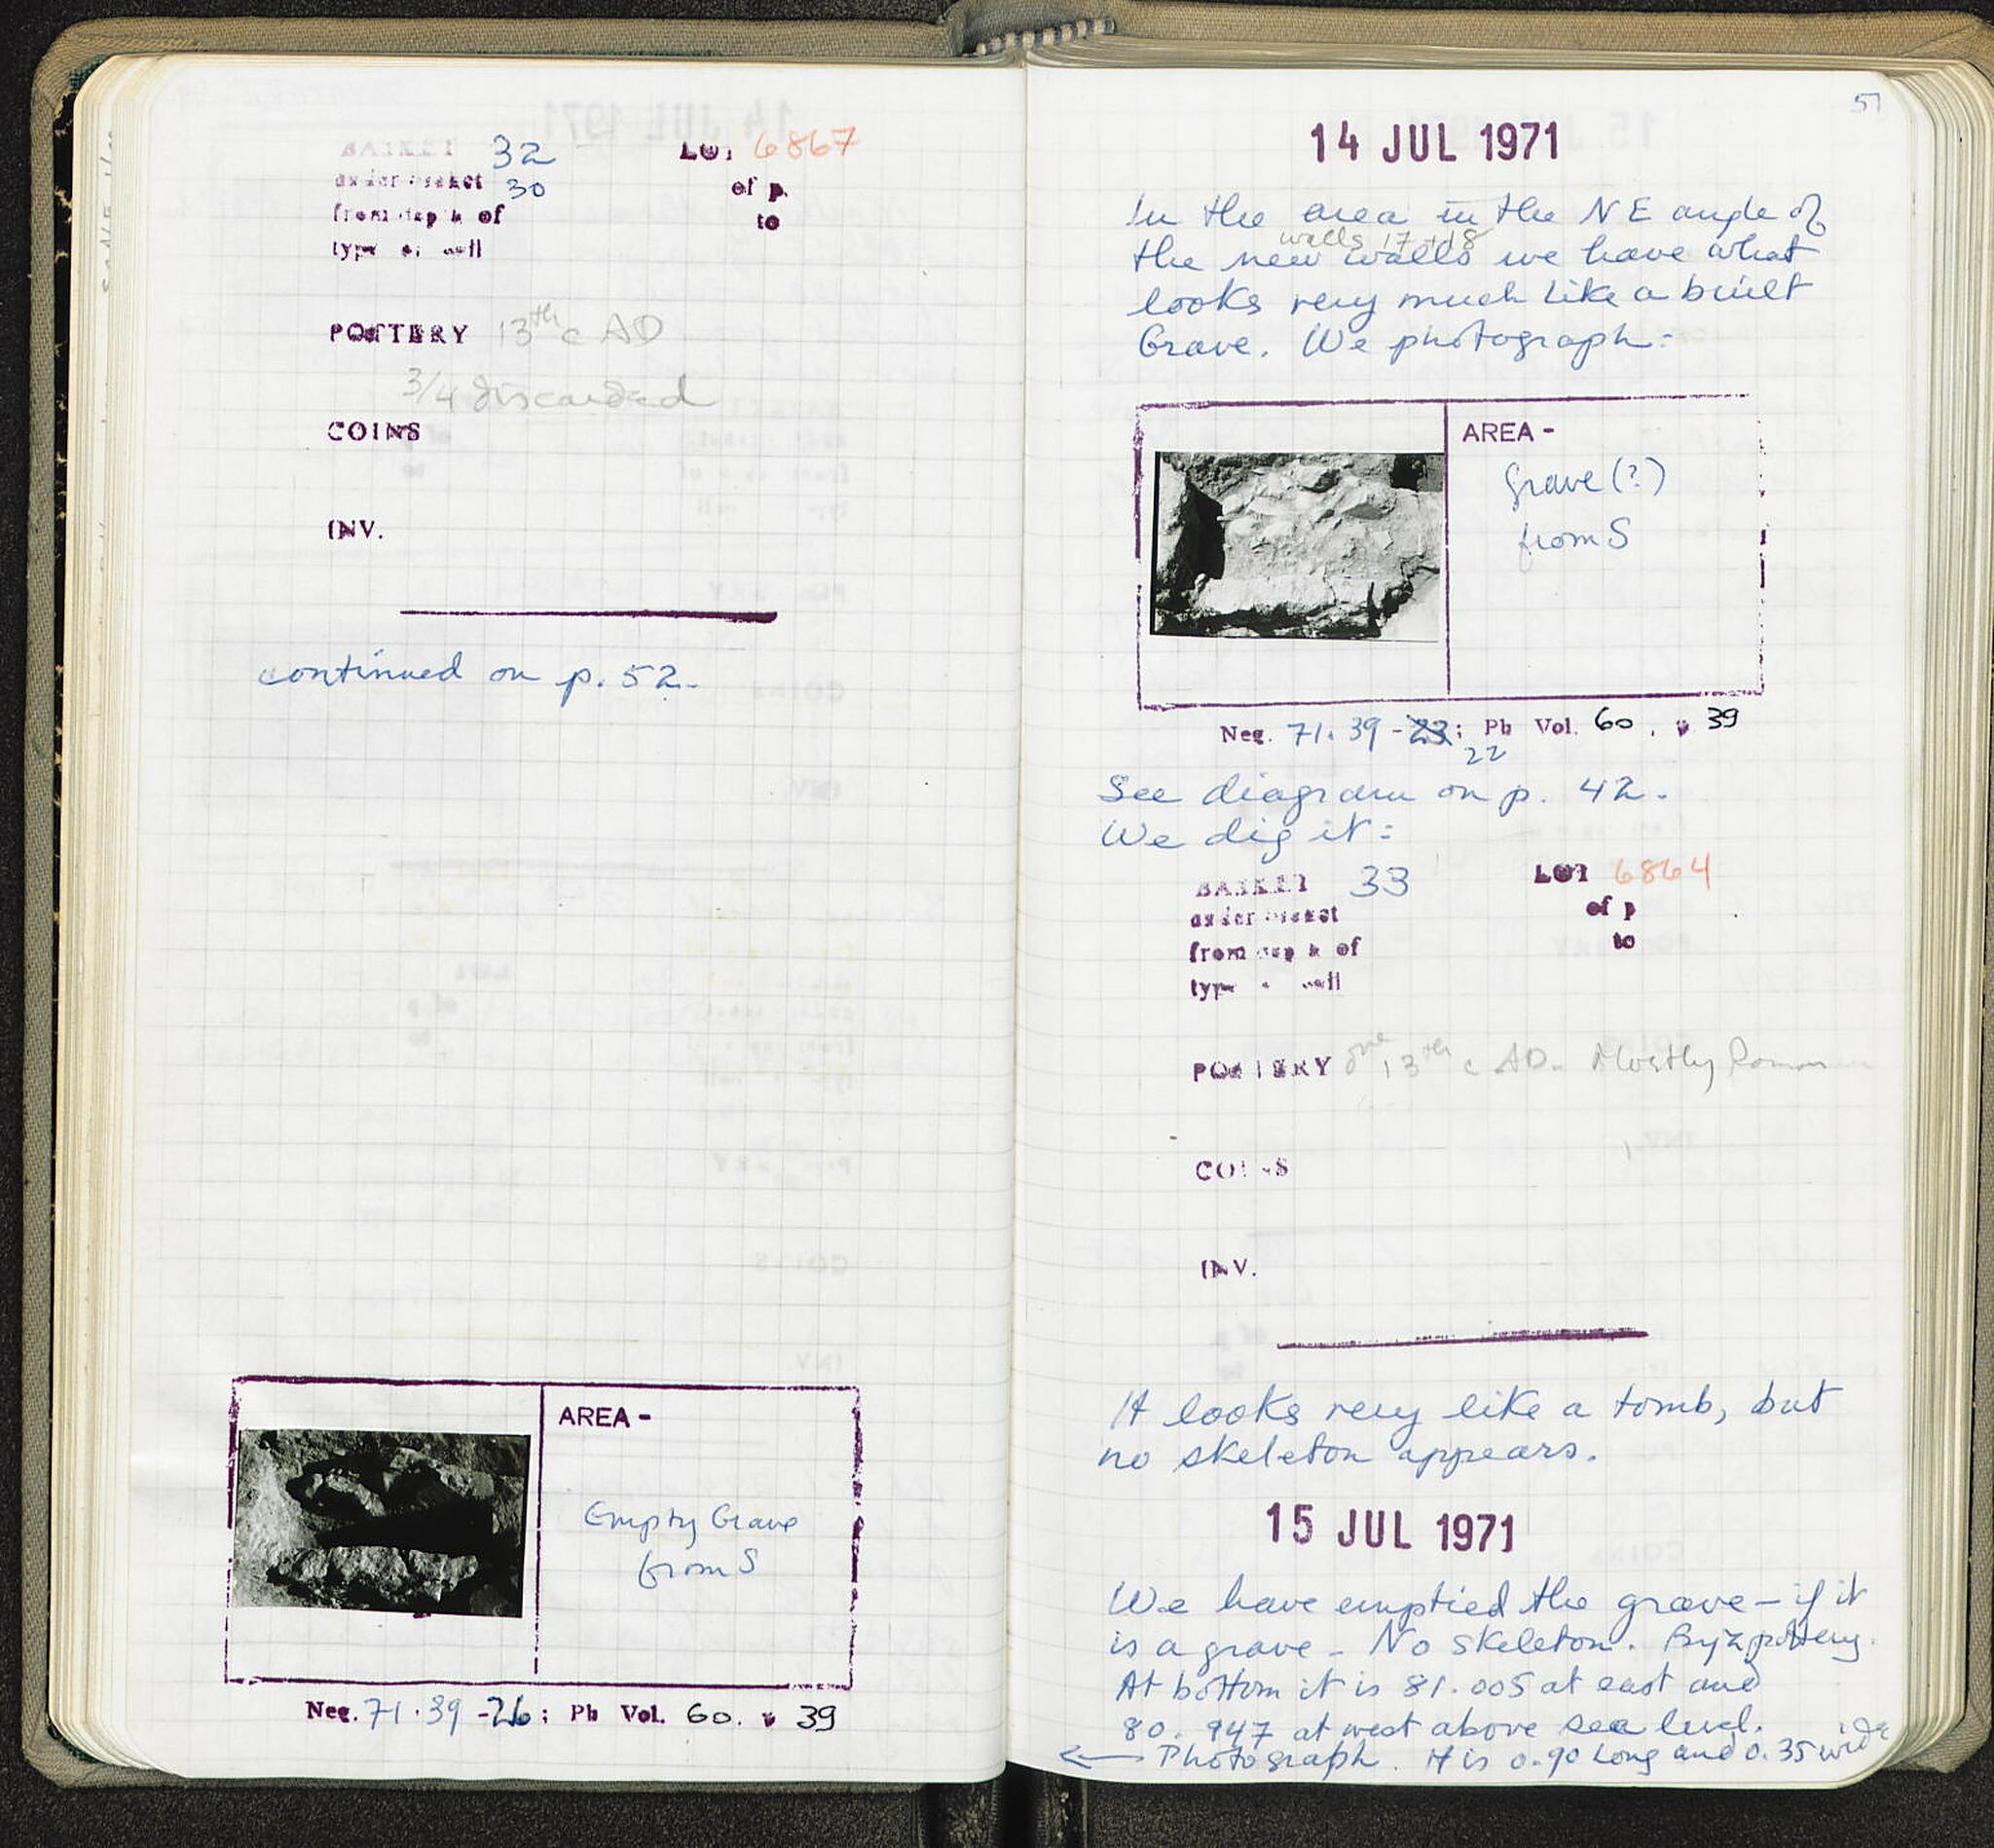 BASKET 32 LOT 6867
under basket 30 of p.
from depth of to
type of soil
POTTERY 13th c AD
3/4 discarded
COINS
INV.
continued on p. 52.
AREA -
Empty Grave
from S
Neg. 71.39 -26; Ph Vol. 60. p 39
51
14 JUL 1971
In the area in the NE angle of
walls 17 + 18
the new walls we have what
looks very much like a built
Grave. We photograph:
AREA -
Grave (?)
from S
Neg. 71.39 -23; Ph Vol. 60, p 39
22
See diagram on p. 42.
We dig it:
BASKET 33 LOT 6864
under basket of p
from depth of to
type of soil
POTTERY one 13th c AD. Mostly Roman
COINS
INV.
It looks very like a tomb, but
no skeleton appears.
15 JUL 1971
We have emptied the grave - if it
is a grave - No skeleton. Byz pottery.
At bottom it is 81.005 at east and
80.947 at west above sea level.
← Photograph. It is 0.90 long and 0.35 wide